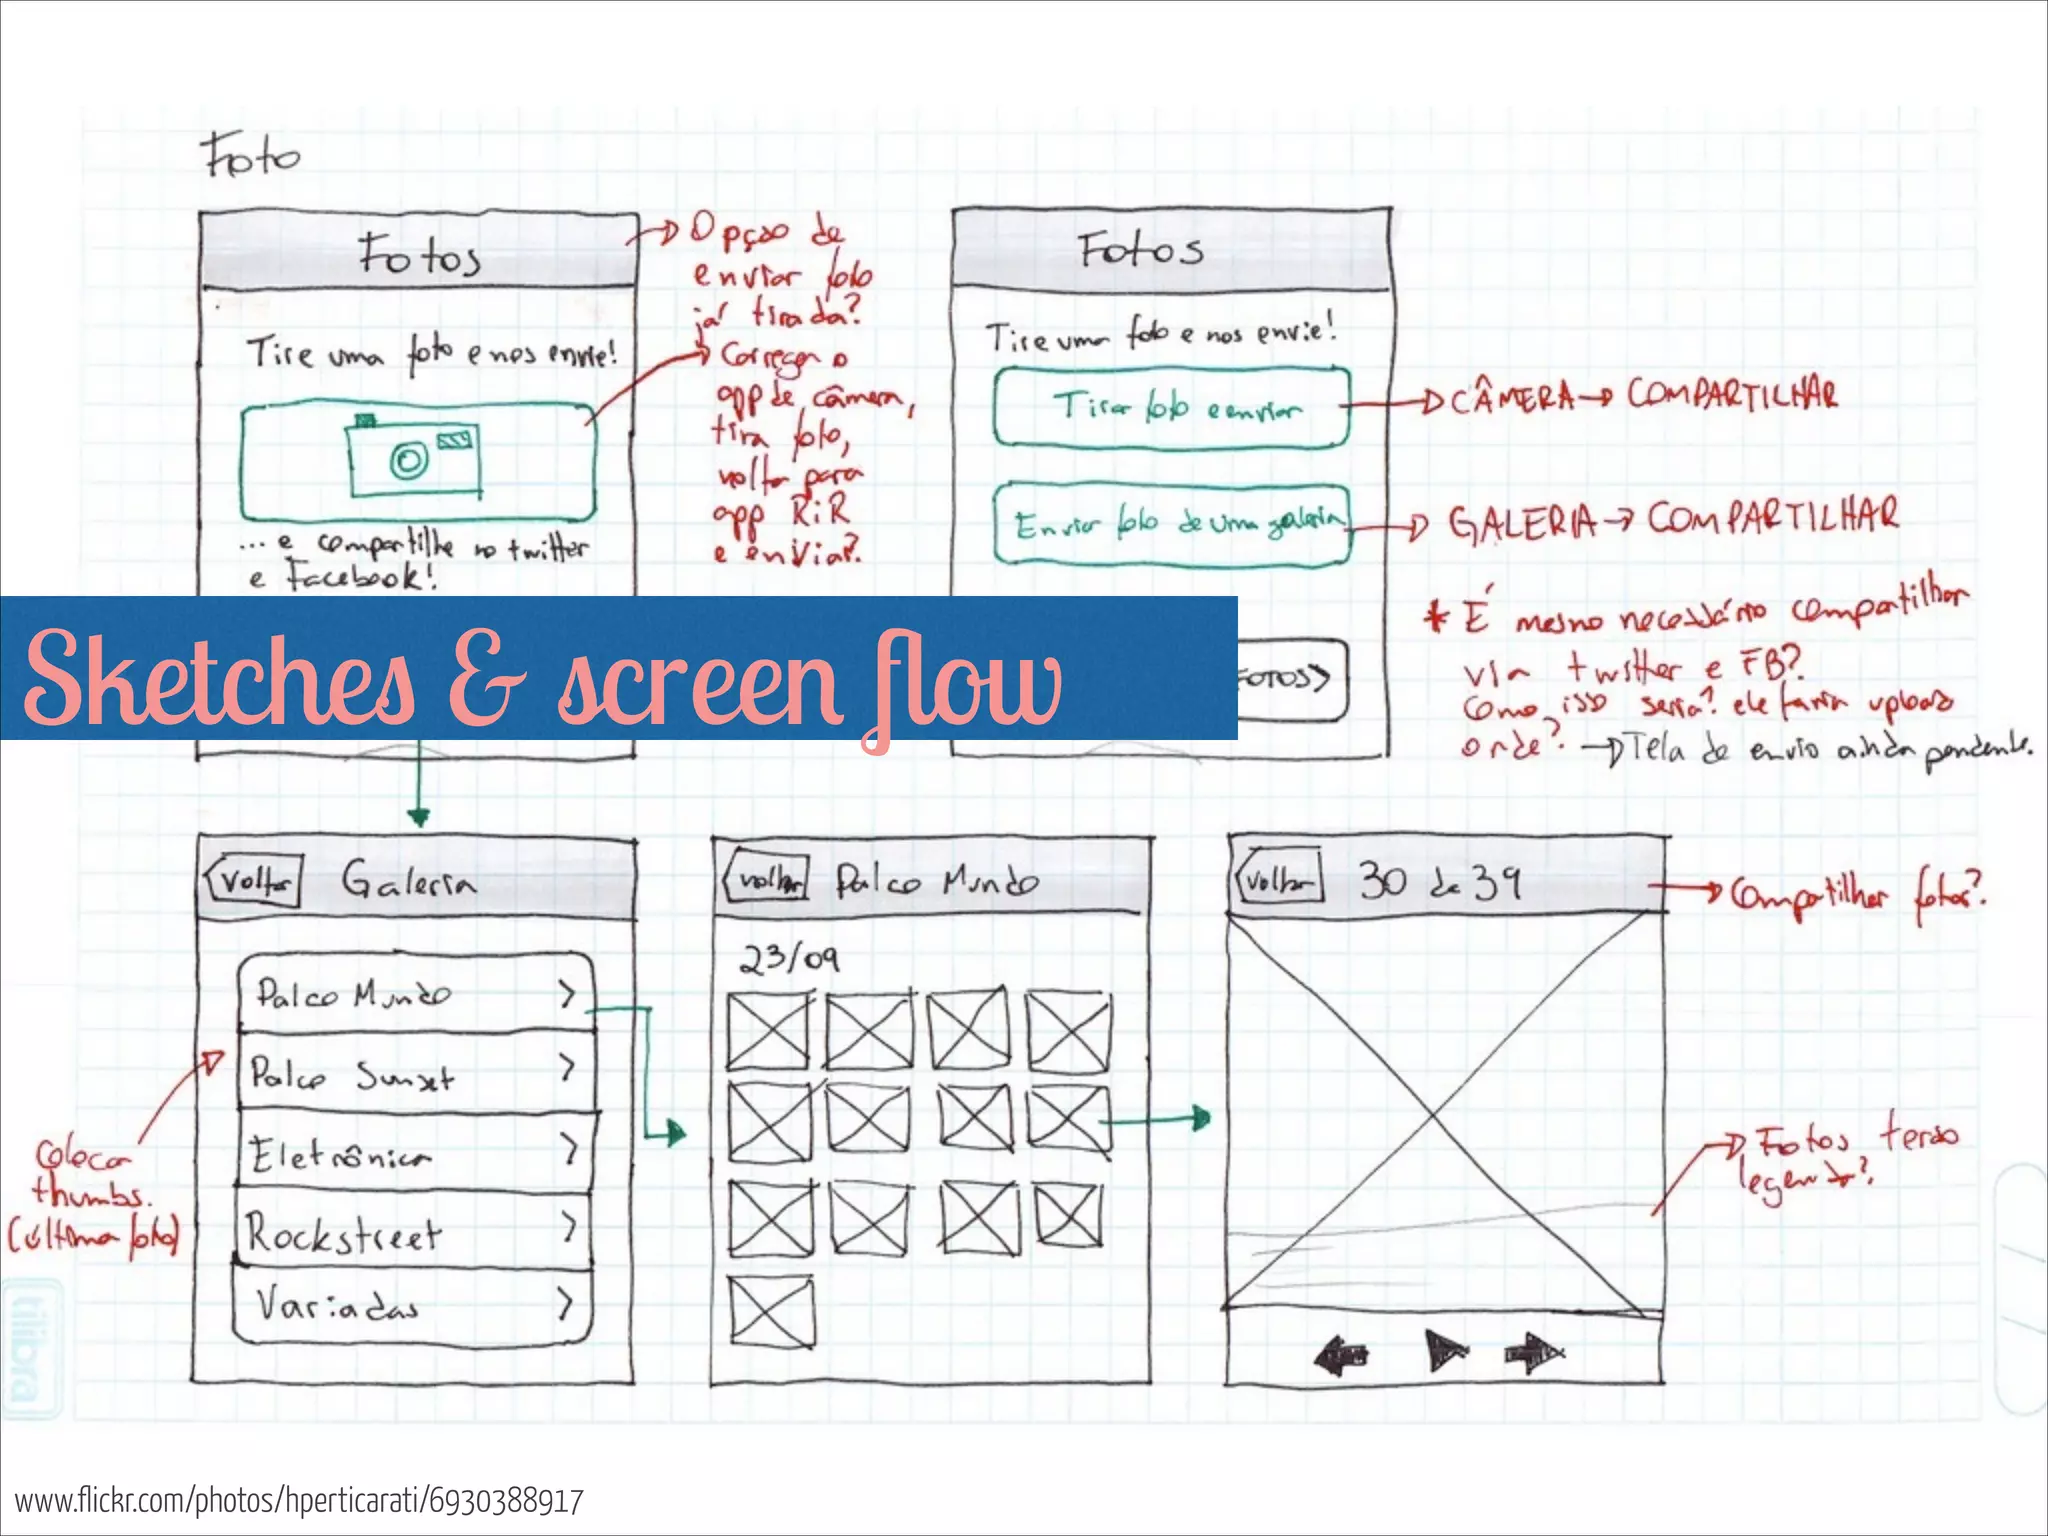 Foto
Fotos
Tire uma foto e nos envie!
... e compartilhe no twitter
e Facebook!
Opção de
enviar foto
já tirada?
Carrega o
app de câmera,
tira foto,
volta para
app RiR
e envia?
Fotos
Tire uma foto e nos envie!
Tirar foto e enviar
Enviar foto de uma galeria
FOTOS>
CÂMERA → COMPARTILHAR
GALERIA → COMPARTILHAR
* É mesmo necessário compartilhar
via twitter e FB?
Como isso seria? ele faria upload
onde? → Tela de envio ainda pendente.
Sketches & screen flow
voltar Galeria
Palco Mundo >
Palco Sunset >
Eletrônica >
Rockstreet >
Variadas >
Colocar
thumbs.
(última foto)
voltar Palco Mundo
23/09
voltar 30 de 39
Compartilhar fotos?
Fotos terão
legenda?
tilibra
www.flickr.com/photos/hperticarati/6930388917